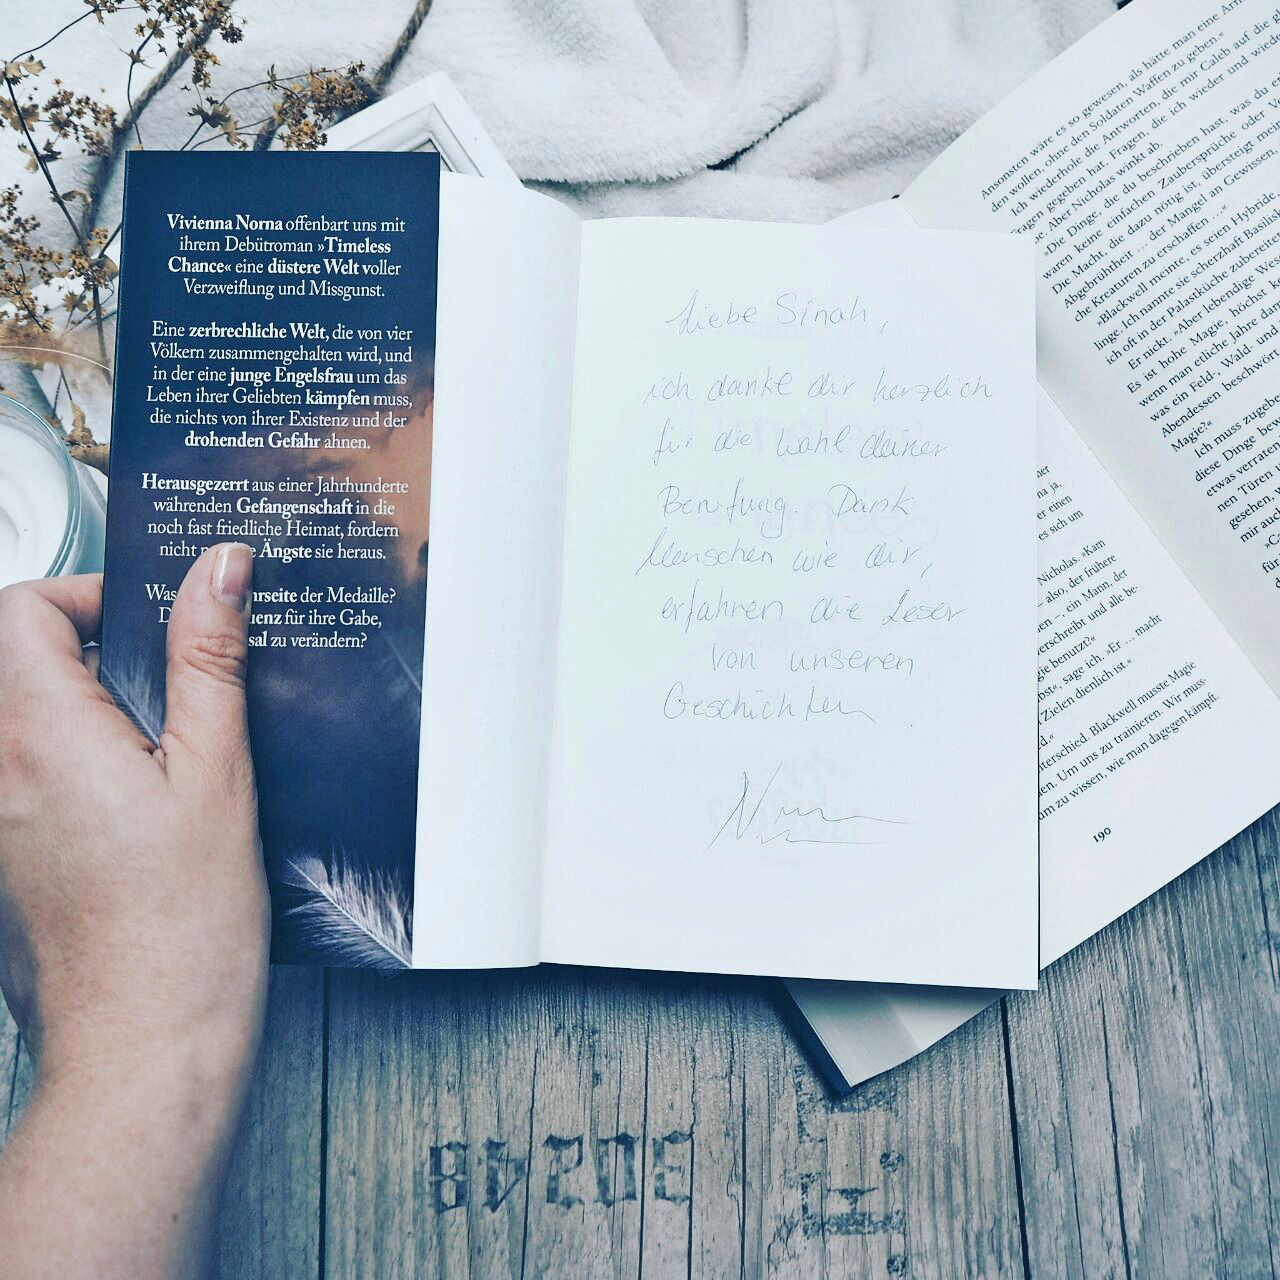 Vivienna Norna offenbart uns mit
ihrem Debütroman »Timeless
Chance« eine düstere Welt voller
Verzweiflung und Missgunst.
Eine zerbrechliche Welt, die von vier
Völkern zusammengehalten wird, und
in der eine junge Engelsfrau um das
Leben ihrer Geliebten kämpfen muss,
die nichts von ihrer Existenz und der
drohenden Gefahr ahnen.
Herausgezerrt aus einer Jahrhunderte
währenden Gefangenschaft in die
noch fast friedliche Heimat, fordern
nicht Ängste sie heraus.
der Medaille?
für ihre Gabe,
zu verändern?
Liebe Sinah,
ich danke dir herzlich
für die Wahl deiner
Berufung. Dank
Menschen wie dir,
erfahren die Leser
von unseren
Geschichten.
Ansonsten wäre es so gewesen, als hätte man eine
den wollen, ohne den Soldaten Waffen zu geben.“
Ich wiederhole die Antworten, die mir Caleb auf die
Fragen gegeben hat, Fragen, die ich wieder und
Aber Nicholas winkt ab.
»Die Dinge, die du beschrieben hast, was du
waren keine einfachen Zaubersprüche oder
Die Macht, die dazu nötig ist, übersteigt
Abgebrühtheit … der Mangel an Gewissen,
che Kreaturen zu erschaffen …“
»Blackwell meinte, es seien Hybride
linge. Ich nannte sie scherzhaft
ich oft in der Palastküche
Er nickt. »Aber lebendige
Es ist hohe Magie, höchs,
wenn man etliche Jahre
was ein Feld-, Wald- und
Abendessen
Magie?«
Ich muss
diese Dinge
etwas verraten
nen Türen
gesehen,
mir auch
für
der
na ja,
er einen
es sich um
Nicholas. »Kam
– also, der frühere
en –, ein Mann, der
verschreibt und alle be-
gie benutzt?«
bst«, sage ich. »Er … macht
Zielen dienlich ist.“
d.“
terschied. Blackwell musste Magie
en. Um uns zu trainieren. Wir muss-
um zu wissen, wie man dagegen kämpft.
190
30248